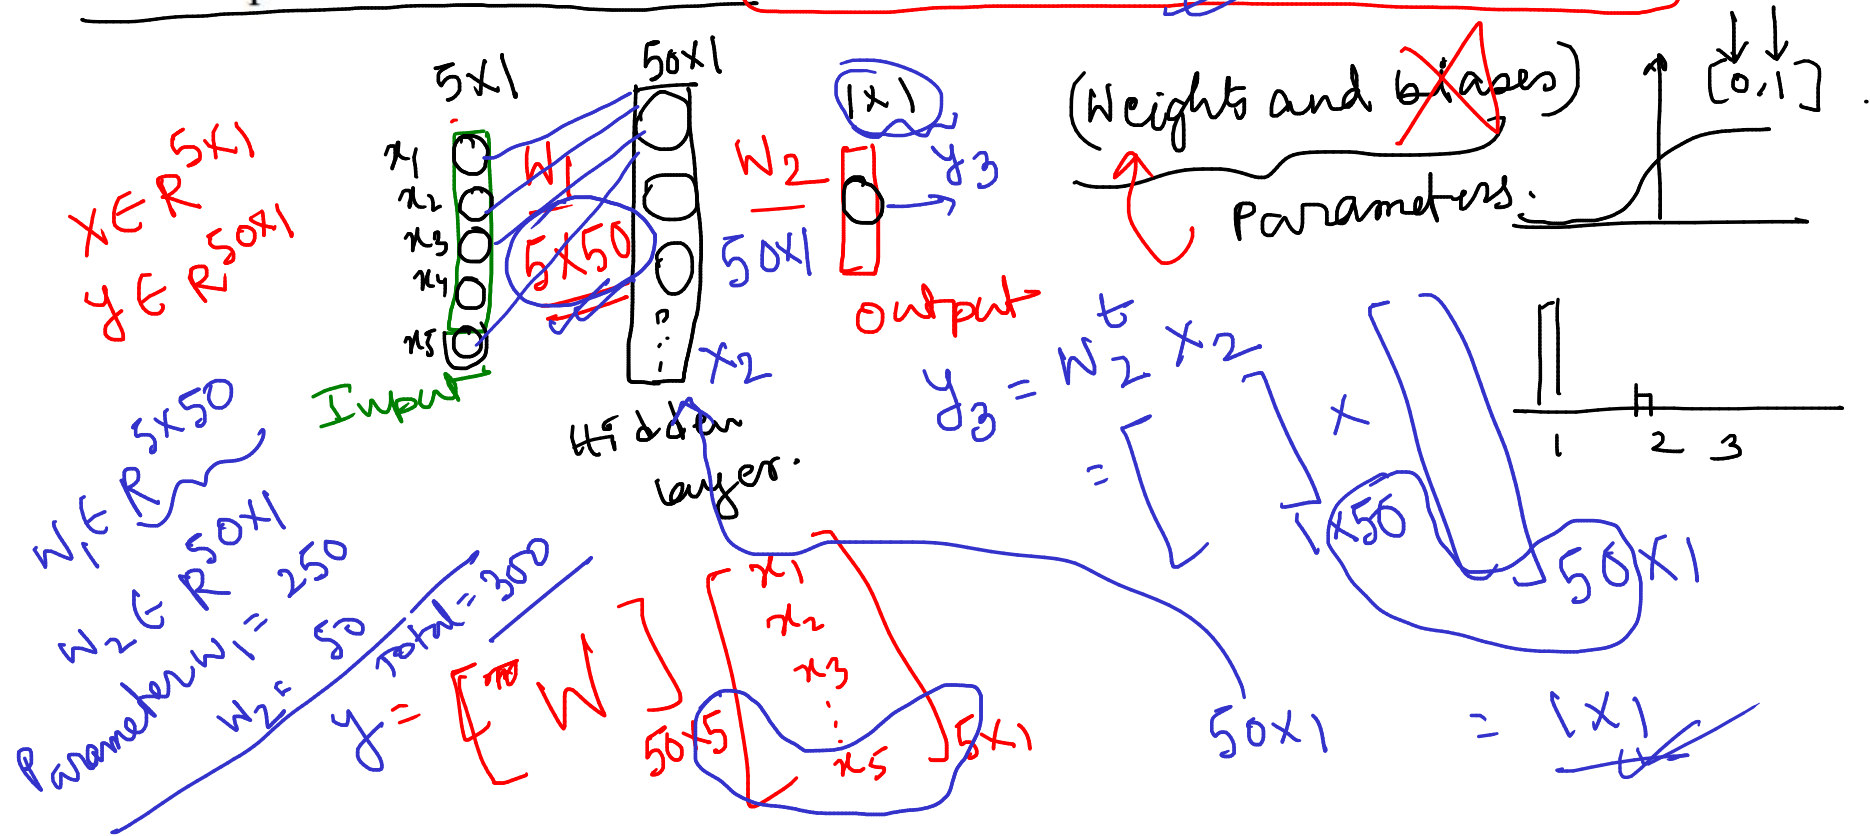 5X1
50X1
1X1
(Weights and biases)
[0,1]
Parameters.
X ∈ R^5X1
y ∈ R^50X1
x1
x2
x3
x4
x5
W1
5X50
W2
50X1
y3
Input
X2
Hidden
layer.
output
y3 = W2^t X2
= [ ] 1X50 X [ ] 50X1
1 2 3
W1 ∈ R^5X50
W2 ∈ R^50X1
Parameter W1 = 250
W2 = 50
Total = 300
y = [ W ] 50X5
x1
x2
x3
⋮
x5
5X1
50X1
= 1X1